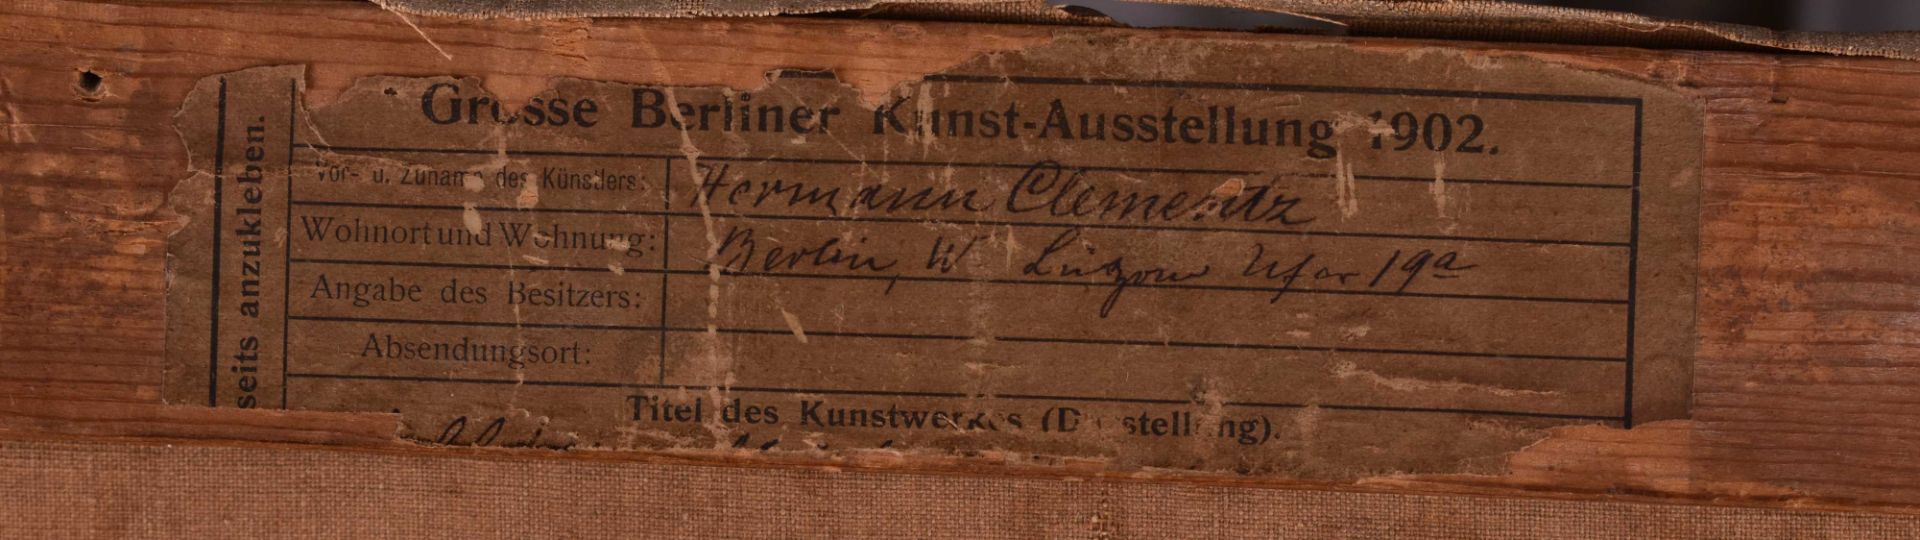 Grosse Berliner Kunst-Ausstellung 1902.
Vor- u. Zuname des Künstlers: Hermann Clementz
Wohnort und Wohnung: Berlin, W. Lützow Ufer 19a
Angabe des Besitzers:
Absendungsort:
Titel des Kunstwerkes (Darstellung).
seits anzukleben.